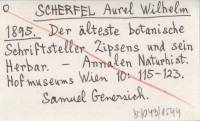 O SCHERFEL Aurel Wilhelm
1895. Der älteste botanische
Schriftsteller Zipsens und sein
Herbar. — Annalen Naturhist.
Hofmuseums Wien 10: 115-123.
Samuel Genersich.